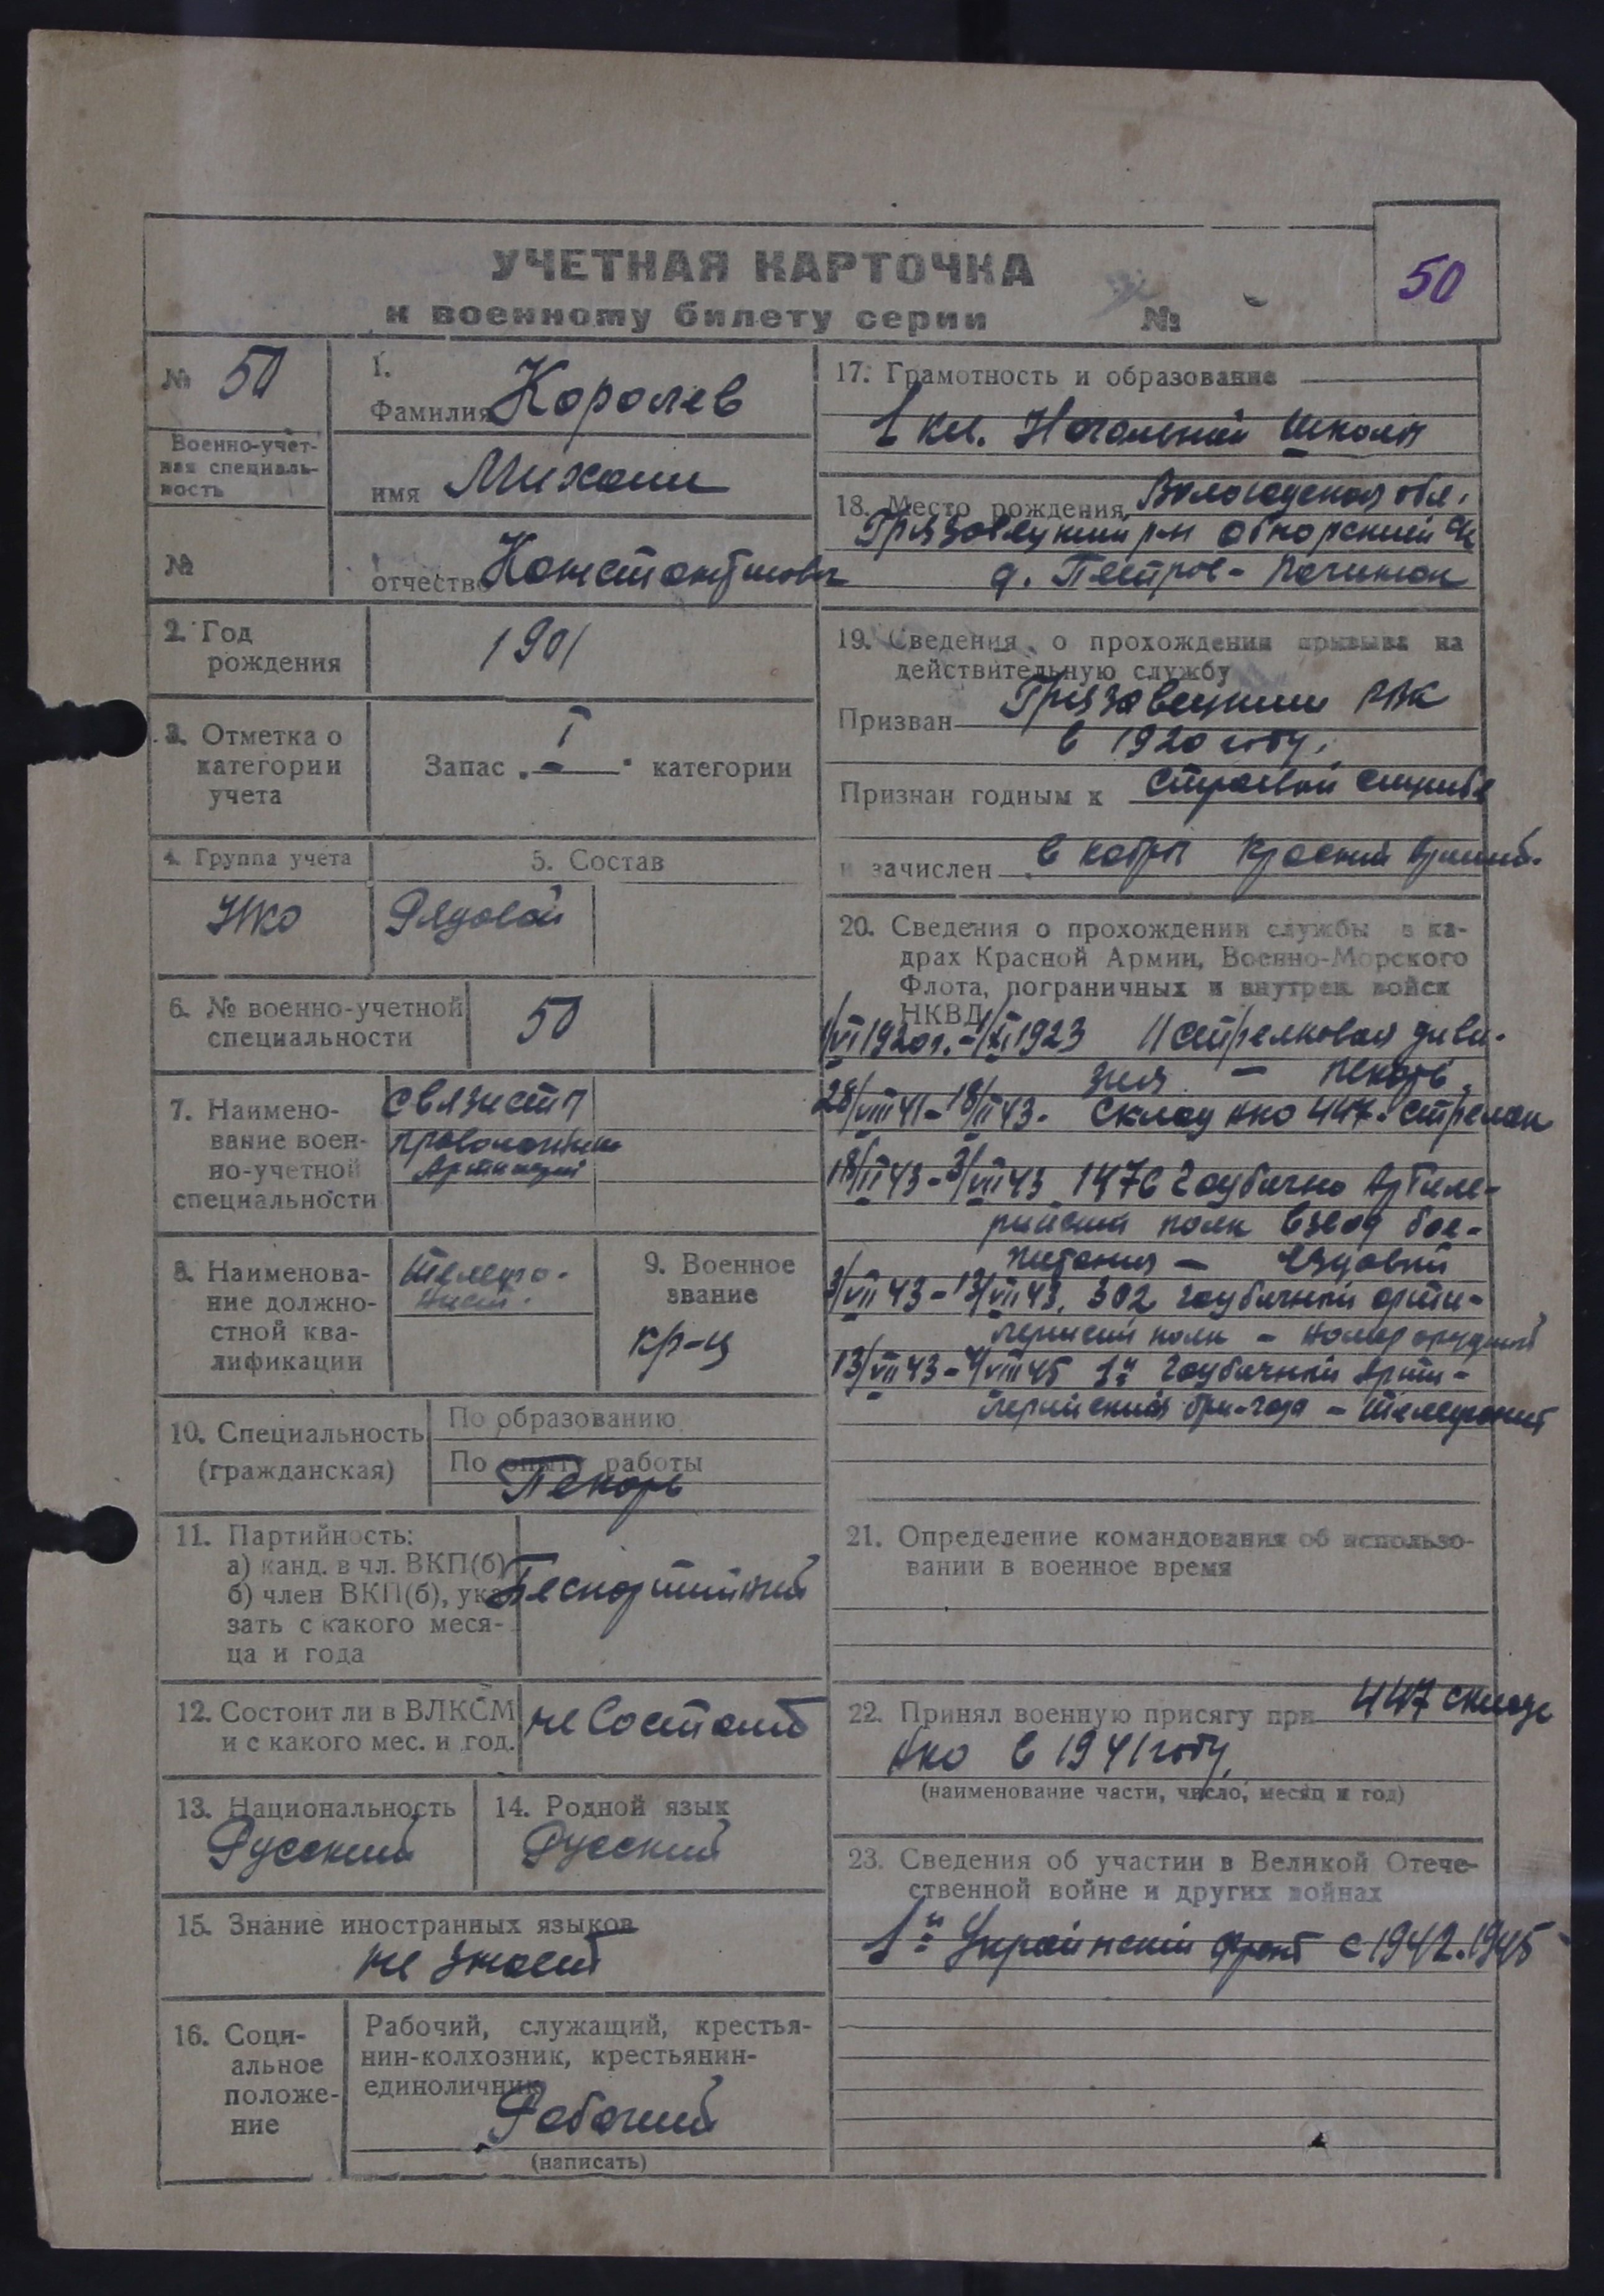 УЧЕТНАЯ КАРТОЧКА
к военному билету серии №
50
№ 50
Военно-учет-
ная специаль-
ность
№
1.
Фамилия Королев
имя Михаил
отчество Константинович
2. Год
рождения
1901
3. Отметка о
категории
учета
Запас „ I " категории
4. Группа учета
НКО
5. Состав
Рядовой
6. № военно-учетной
специальности
50
7. Наимено-
вание воен-
но-учетной
специальности
Связисты
Артиллерии
8. Наименова-
ние должно-
стной ква-
лификации
Телефо-
нист.
9. Военное
звание
кр-ц
10. Специальность
(гражданская)
По образованию
По опыту работы
Пекарь
11. Партийность:
а) канд. в чл. ВКП(б)
б) член ВКП(б), ука-
зать с какого меся-
ца и года
Беспартийный
12. Состоит ли в ВЛКСМ
и с какого мес. и год.
не Состоит
13. Национальность
Русский
14. Родной язык
Русский
15. Знание иностранных языков
не знает
16. Соци-
альное
положе-
ние
Рабочий, служащий, крестья-
нин-колхозник, крестьянин-
единоличник
Рабочий
(написать)
17. Грамотность и образование
1 кл. Начальной школы
18. Место рождения Вологодская обл.
Грязовецкий р-н Обнорский
д. Пестров- Починок
19. Сведения о прохождении призыва на
действительную службу
Призван Грязовецким РВК
в 1920 году.
Признан годным к строевой службе
и зачислен в кадры Красной
20. Сведения о прохождении службы в ка-
драх Красной Армии, Военно-Морского
Флота, пограничных и внутрен. войск
НКВД
1/VI 1920г. - 1/XI 1923 11 стрелковая диви-
зия - пекарь.
28/VIII 41 - 18/II 43. Склад нко 447. стрелок
18/II 43 - 3/VII 43 1476 Гаубично Артиле-
рийский полк взвод бое-
питания - Ездовый
3/VII 43 - 13/VII 43. 302 гаубичный арти-
лерийский полк - номер орудийный
13/VII 43 - 4/VIII 45 1я Гаубичный Арти-
лерийский бри-гада - телефонист
21. Определение командования об использо-
вании в военное время
22. Принял военную присягу при 447 складе
нко в 1941 году,
(наименование части, число, месяц и год)
23. Сведения об участии в Великой Отече-
ственной войне и других войнах
1й Украинский фронт с 1942.1945